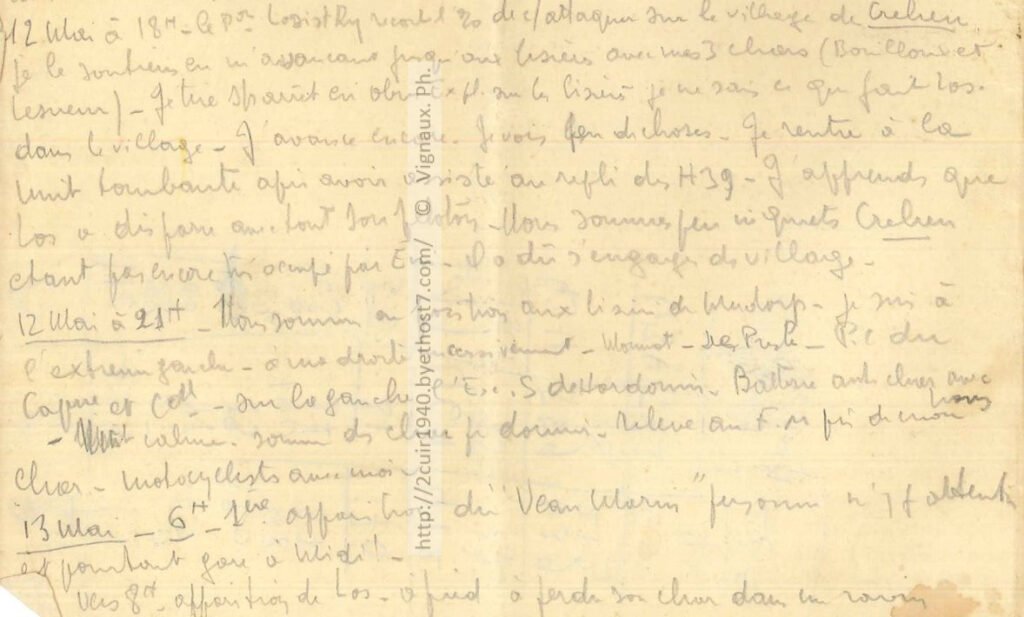 12 Mai à 18H - le pon Losistky reçoit l'o de c/attaquer sur le village de Crehen
je le soutiens en m'avançant jusqu'aux lisières avec mes 3 chars (Bouillon et
Lesueur) - Je tire sur les lisières je ne sais ce que fait Los.
dans le village - J'avance encore. Je vois peu de choses - Je rentre à la
nuit tombante après avoir assisté au repli des H39 - J'apprends que
Los a disparu avec tout son peloton - Nous sommes peu inquiets Crehen
étant pas encore occupé par En - il a dû s'engager ds village -
12 Mai à 21H - Nous sommes en position aux lisières de - je suis à
l'extrême gauche - à ma droite successivement - - - P.C du
Capne et Cdt - sur la gauche l'Esc. S de - Batterie anti chars avec
nous
- Nuit calme. sommes ds chars je dormis - relève au F.M près de mon
char - motocyclistes avec moi -
13 Mai - 6H - 1ère apparition du "Veau Marin" personne n'y fait attention
et pourtant gare à Midi! -
vers 8H - apparition de Los - à pied à perdu son char dans un ravin
http://2cuir1940.byethost7.com/ © Vignaux. Ph.